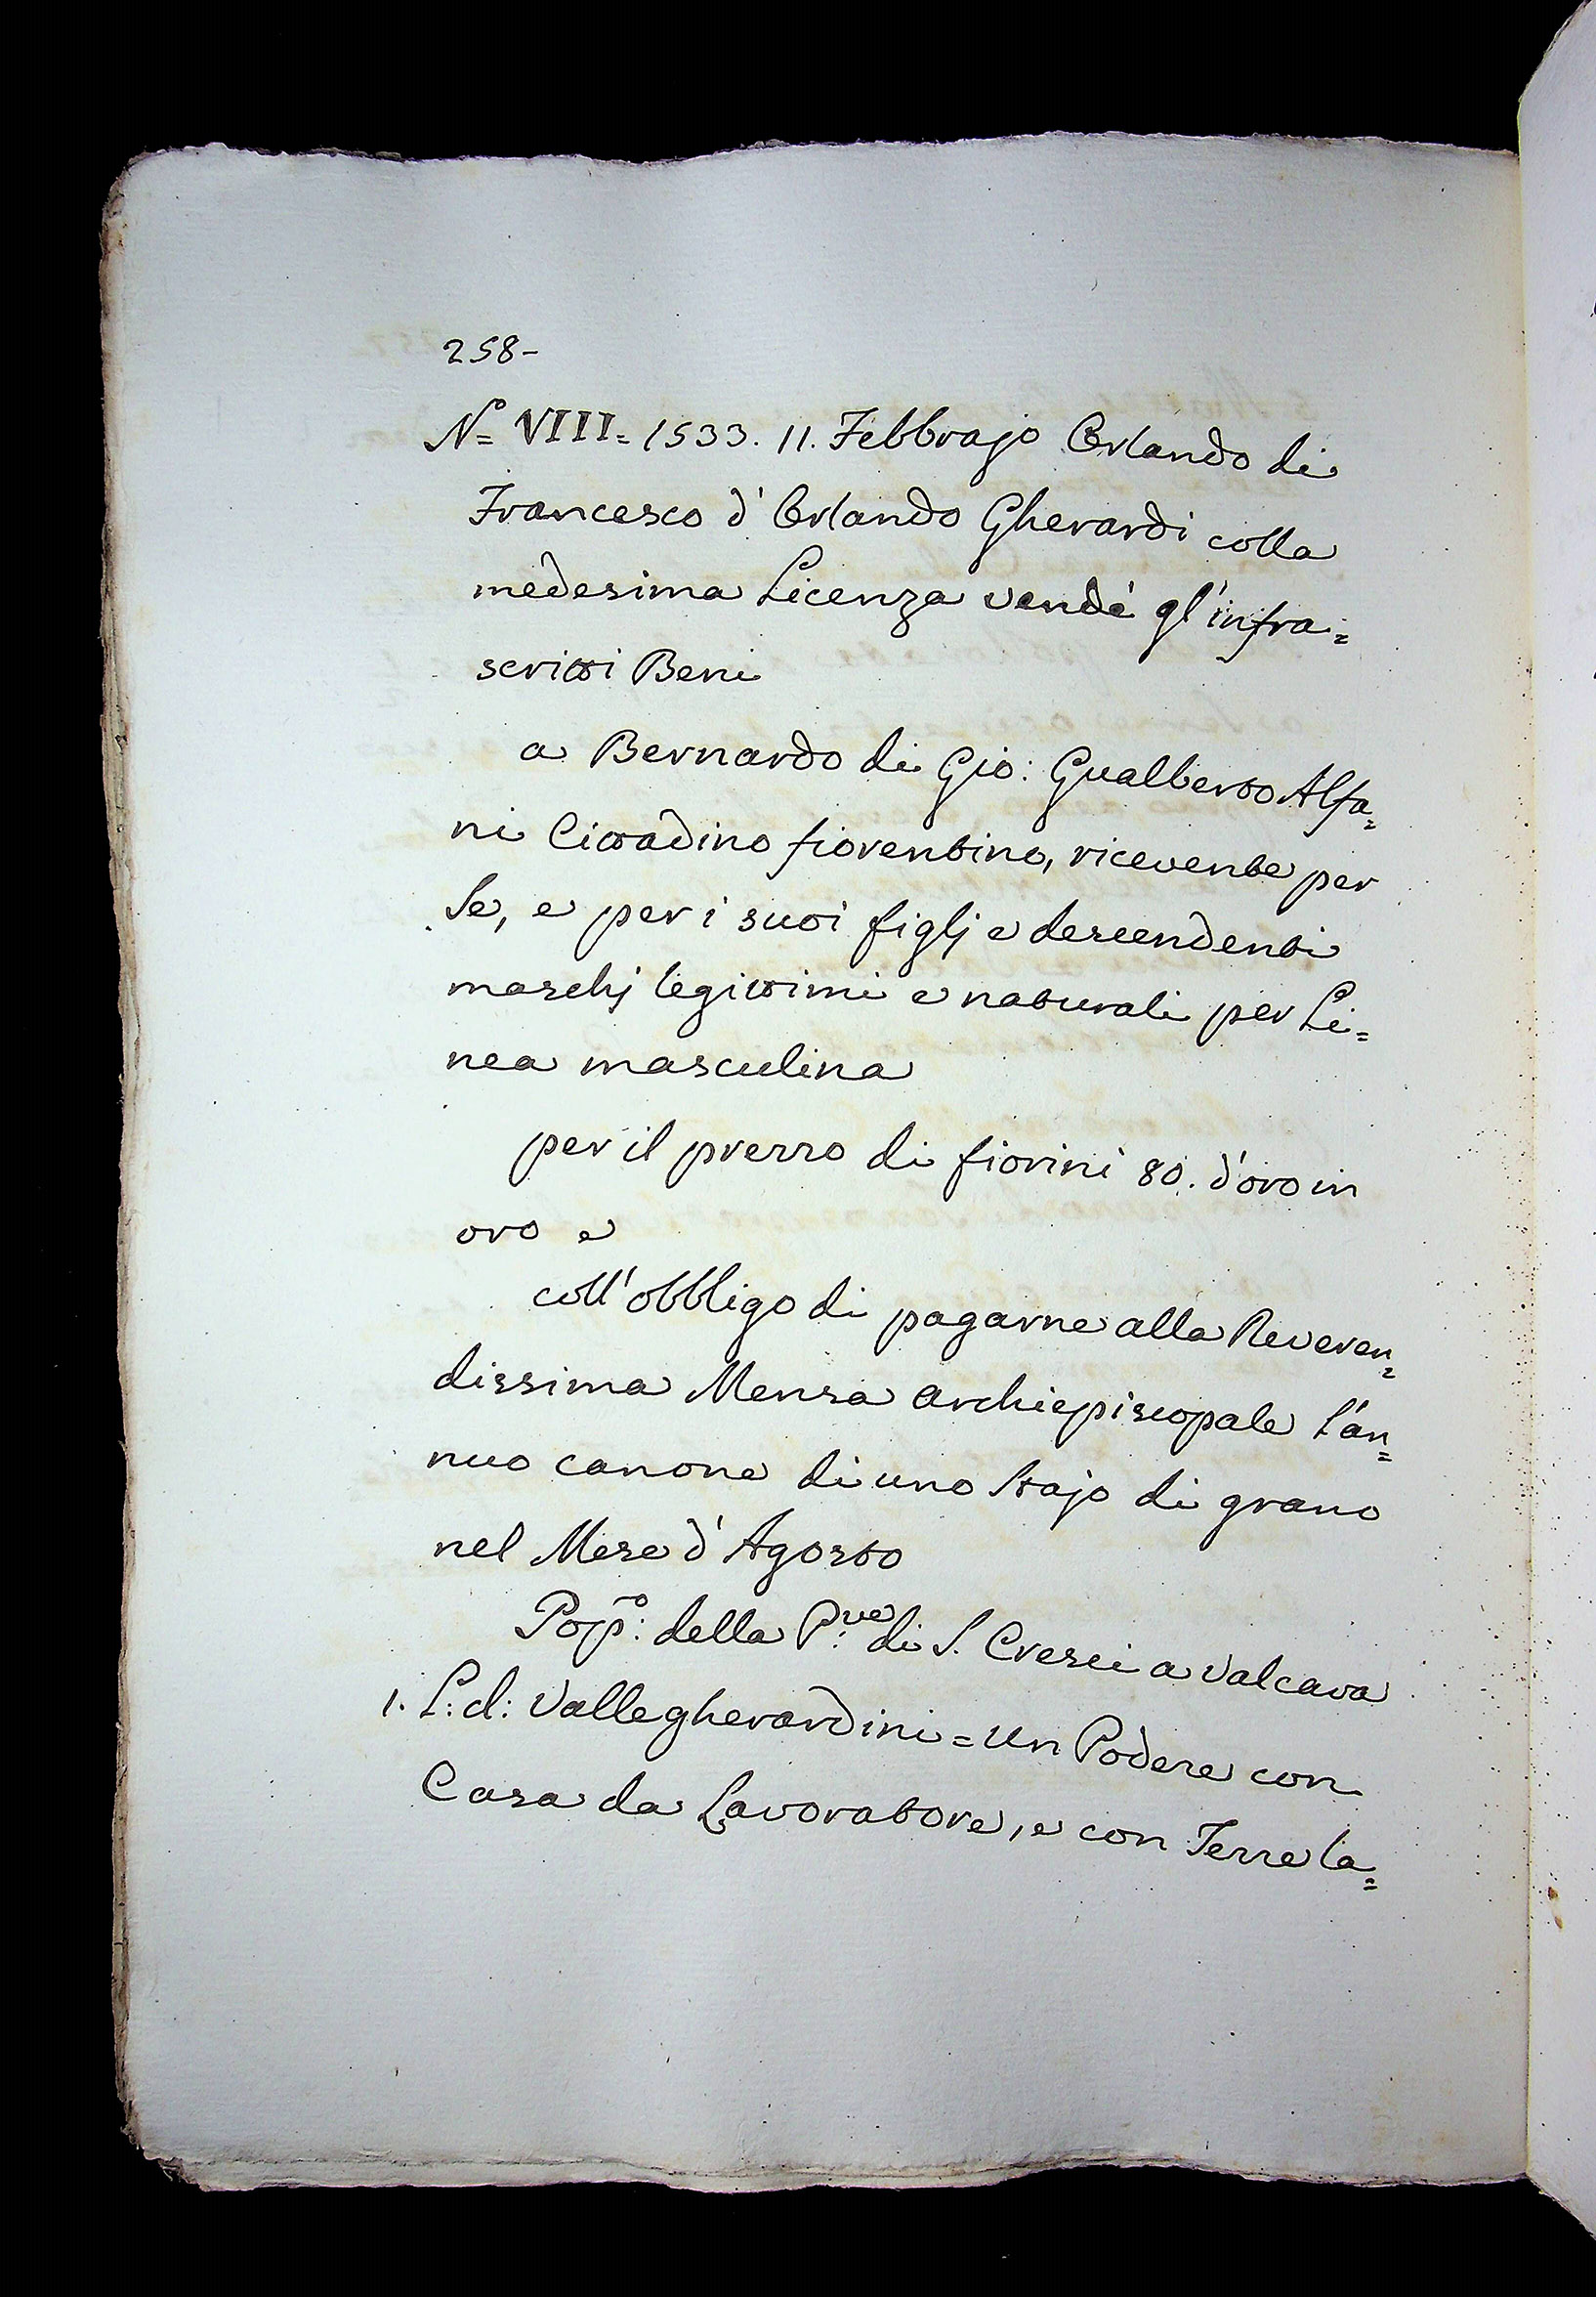 258-
Nº VIII= 1533. 11. Febbrajo Orlando di
Francesco d'Orlando Gherardi colla
medesima Licenza vendè gl'infra=
scritti Beni
a Bernardo di Gio: Gualberto Alfa=
ni Cittadino fiorentino, ricevente per
Se, e per i suoi figlj e descendenti
maschj legittimi e naturali per Li=
nea masculina
per il prezzo di fiorini 80. d'oro in
oro e
coll'obbligo di pagarne alla Reveren=
dissima Mensa archiepiscopale l'an=
nuo canone di uno Stajo di grano
nel Mese d'Agosto
Popº: della P:ve di S. Cresci a Valcava
1. L:d: Vallegherardini = Un Podere con
Casa da Lavoratore, e con Terre la=